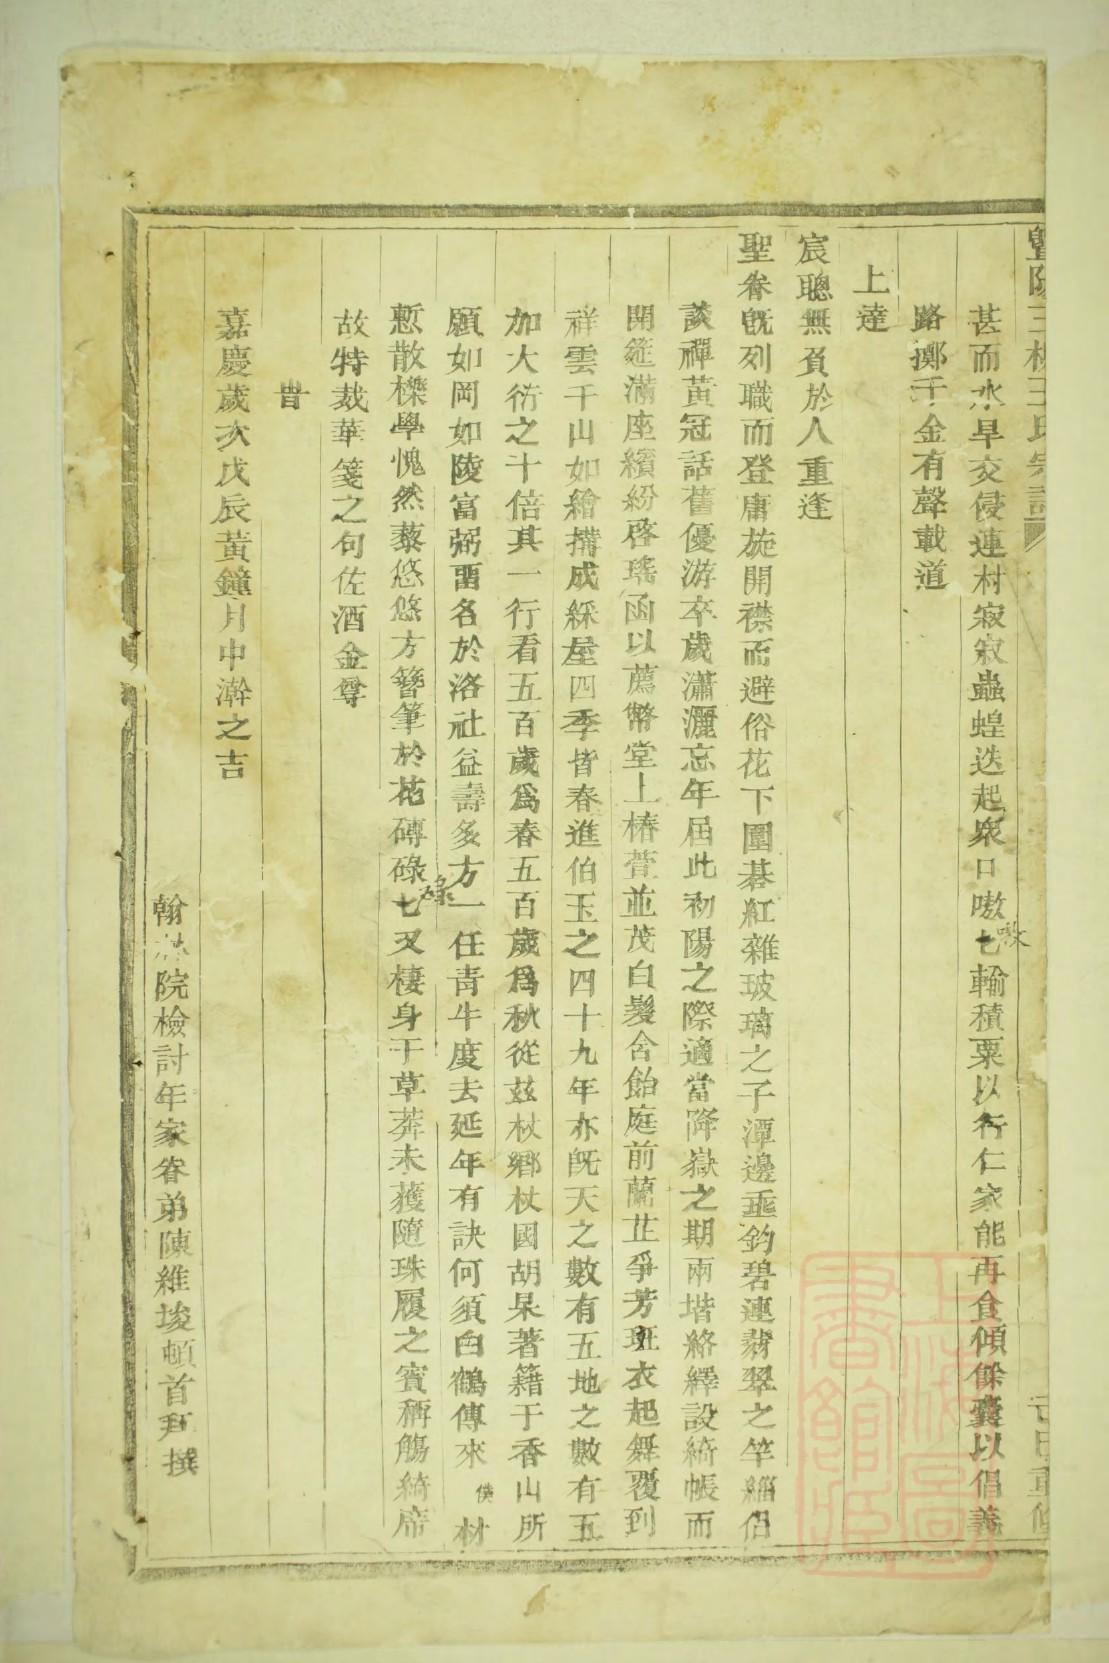 暨陽三板王氏宗譜
甚而水旱交侵連村寂寂蟲蝗迭起衆口嗷七輸積粟以行仁家能再食傾餘囊以倡義
路擲千金有聲載道
上達
宸聰無負於人重逢
聖眷旣列職而登庸旋開襟而避俗花下圍碁紅雜玻璃之子潭邊垂鈞碧連翡翠之竿緇侣
談禪黃冠話舊優游卒歲瀟灑忘年届此初陽之際適當降嶽之期兩堦絡繹設綺帳而
開筵滿座繽紛啓瑤函以薦幣堂上椿萱並茂白髮含飴庭前蘭芷爭芳斑衣起舞覆到
祥雲千山如繪搆成綵屋四季皆春進伯玉之四十九年亦旣天之數有五地之數有五
加大衍之十倍其一行看五百歲爲春五百歲爲秋從玆杖鄉杖國胡杲著籍于香山所
願如岡如陵富弼畱名於洛社益壽多方一任青牛度去延年有訣何須白鶴傳來 僕 材
慙散櫟學愧然藜悠悠方簪筆於花磚碌七又棲身于草莽未獲隨珠履之賓稱觴綺席
故特裁華箋之句佐酒金尊
旹
嘉慶歲次戊辰黃鐘月中澣之吉
翰林院檢討年家眷弟陳維埈頓首拜撰
上海圖書館藏